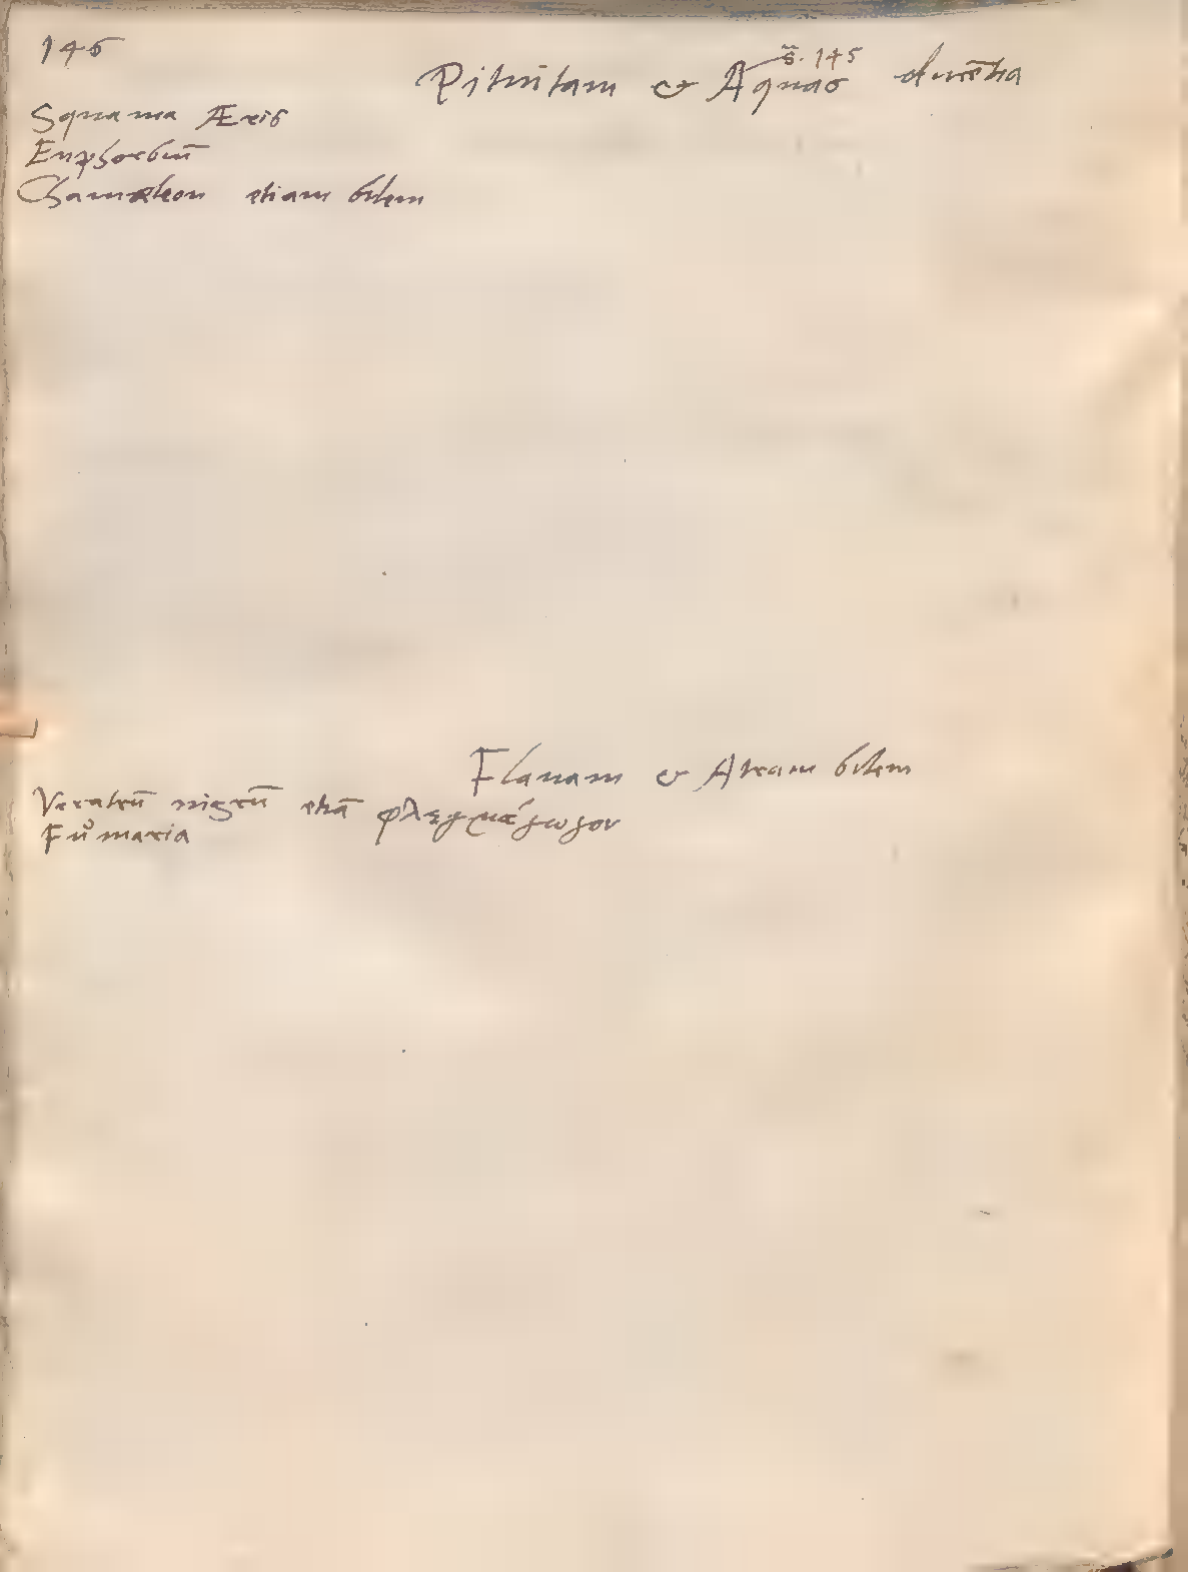 146
s̃. 145
Pituitam & Aquas ducẽtia
Squama Æris
Euphorbiũ
Chamæleon etiam bilem
Flauam & Atram bilem
Veratrũ nigrũ etiã φλεγμάγωγον
Fumaria